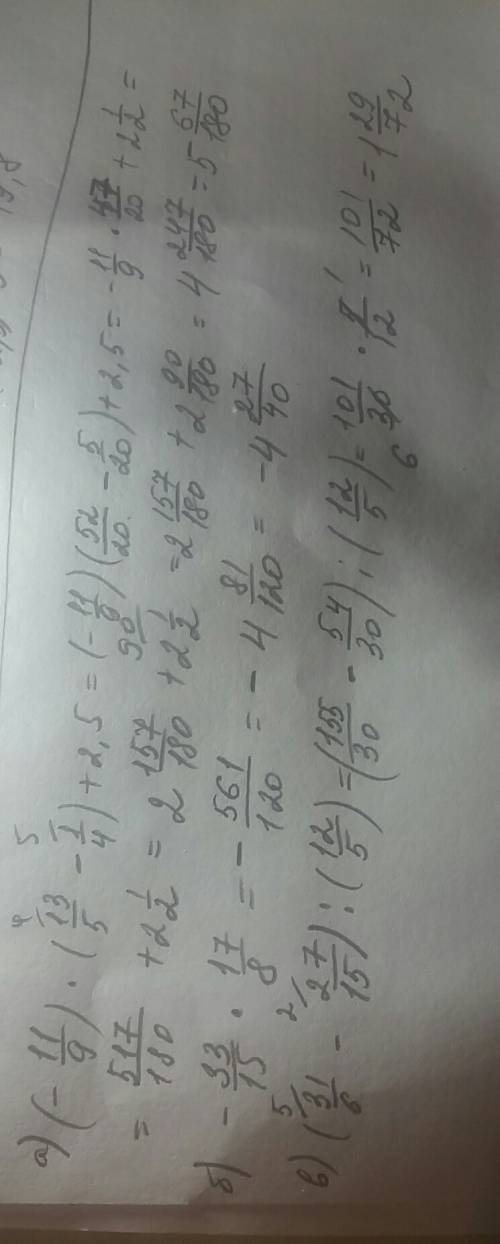 а) (- 11/9) · (13/5 - 1/4) + 2,5 = (- 11/9) (52/20 - 5/20) + 2,5 = - 11/9 · 47/20 + 2 1/2 =
= 517/180 + 2 1/2 = 2 157/180 + 2 1/2 = 2 157/180 + 2 90/180 = 4 247/180 = 5 67/180
б) - 33/15 · 17/8 = - 561/120 = - 4 81/120 = - 4 27/40
в) (31/6 - 27/15) : (12/5) = (155/30 - 54/30) : (12/5) = 101/30 · 5/12 = 101/72 = 1 29/72